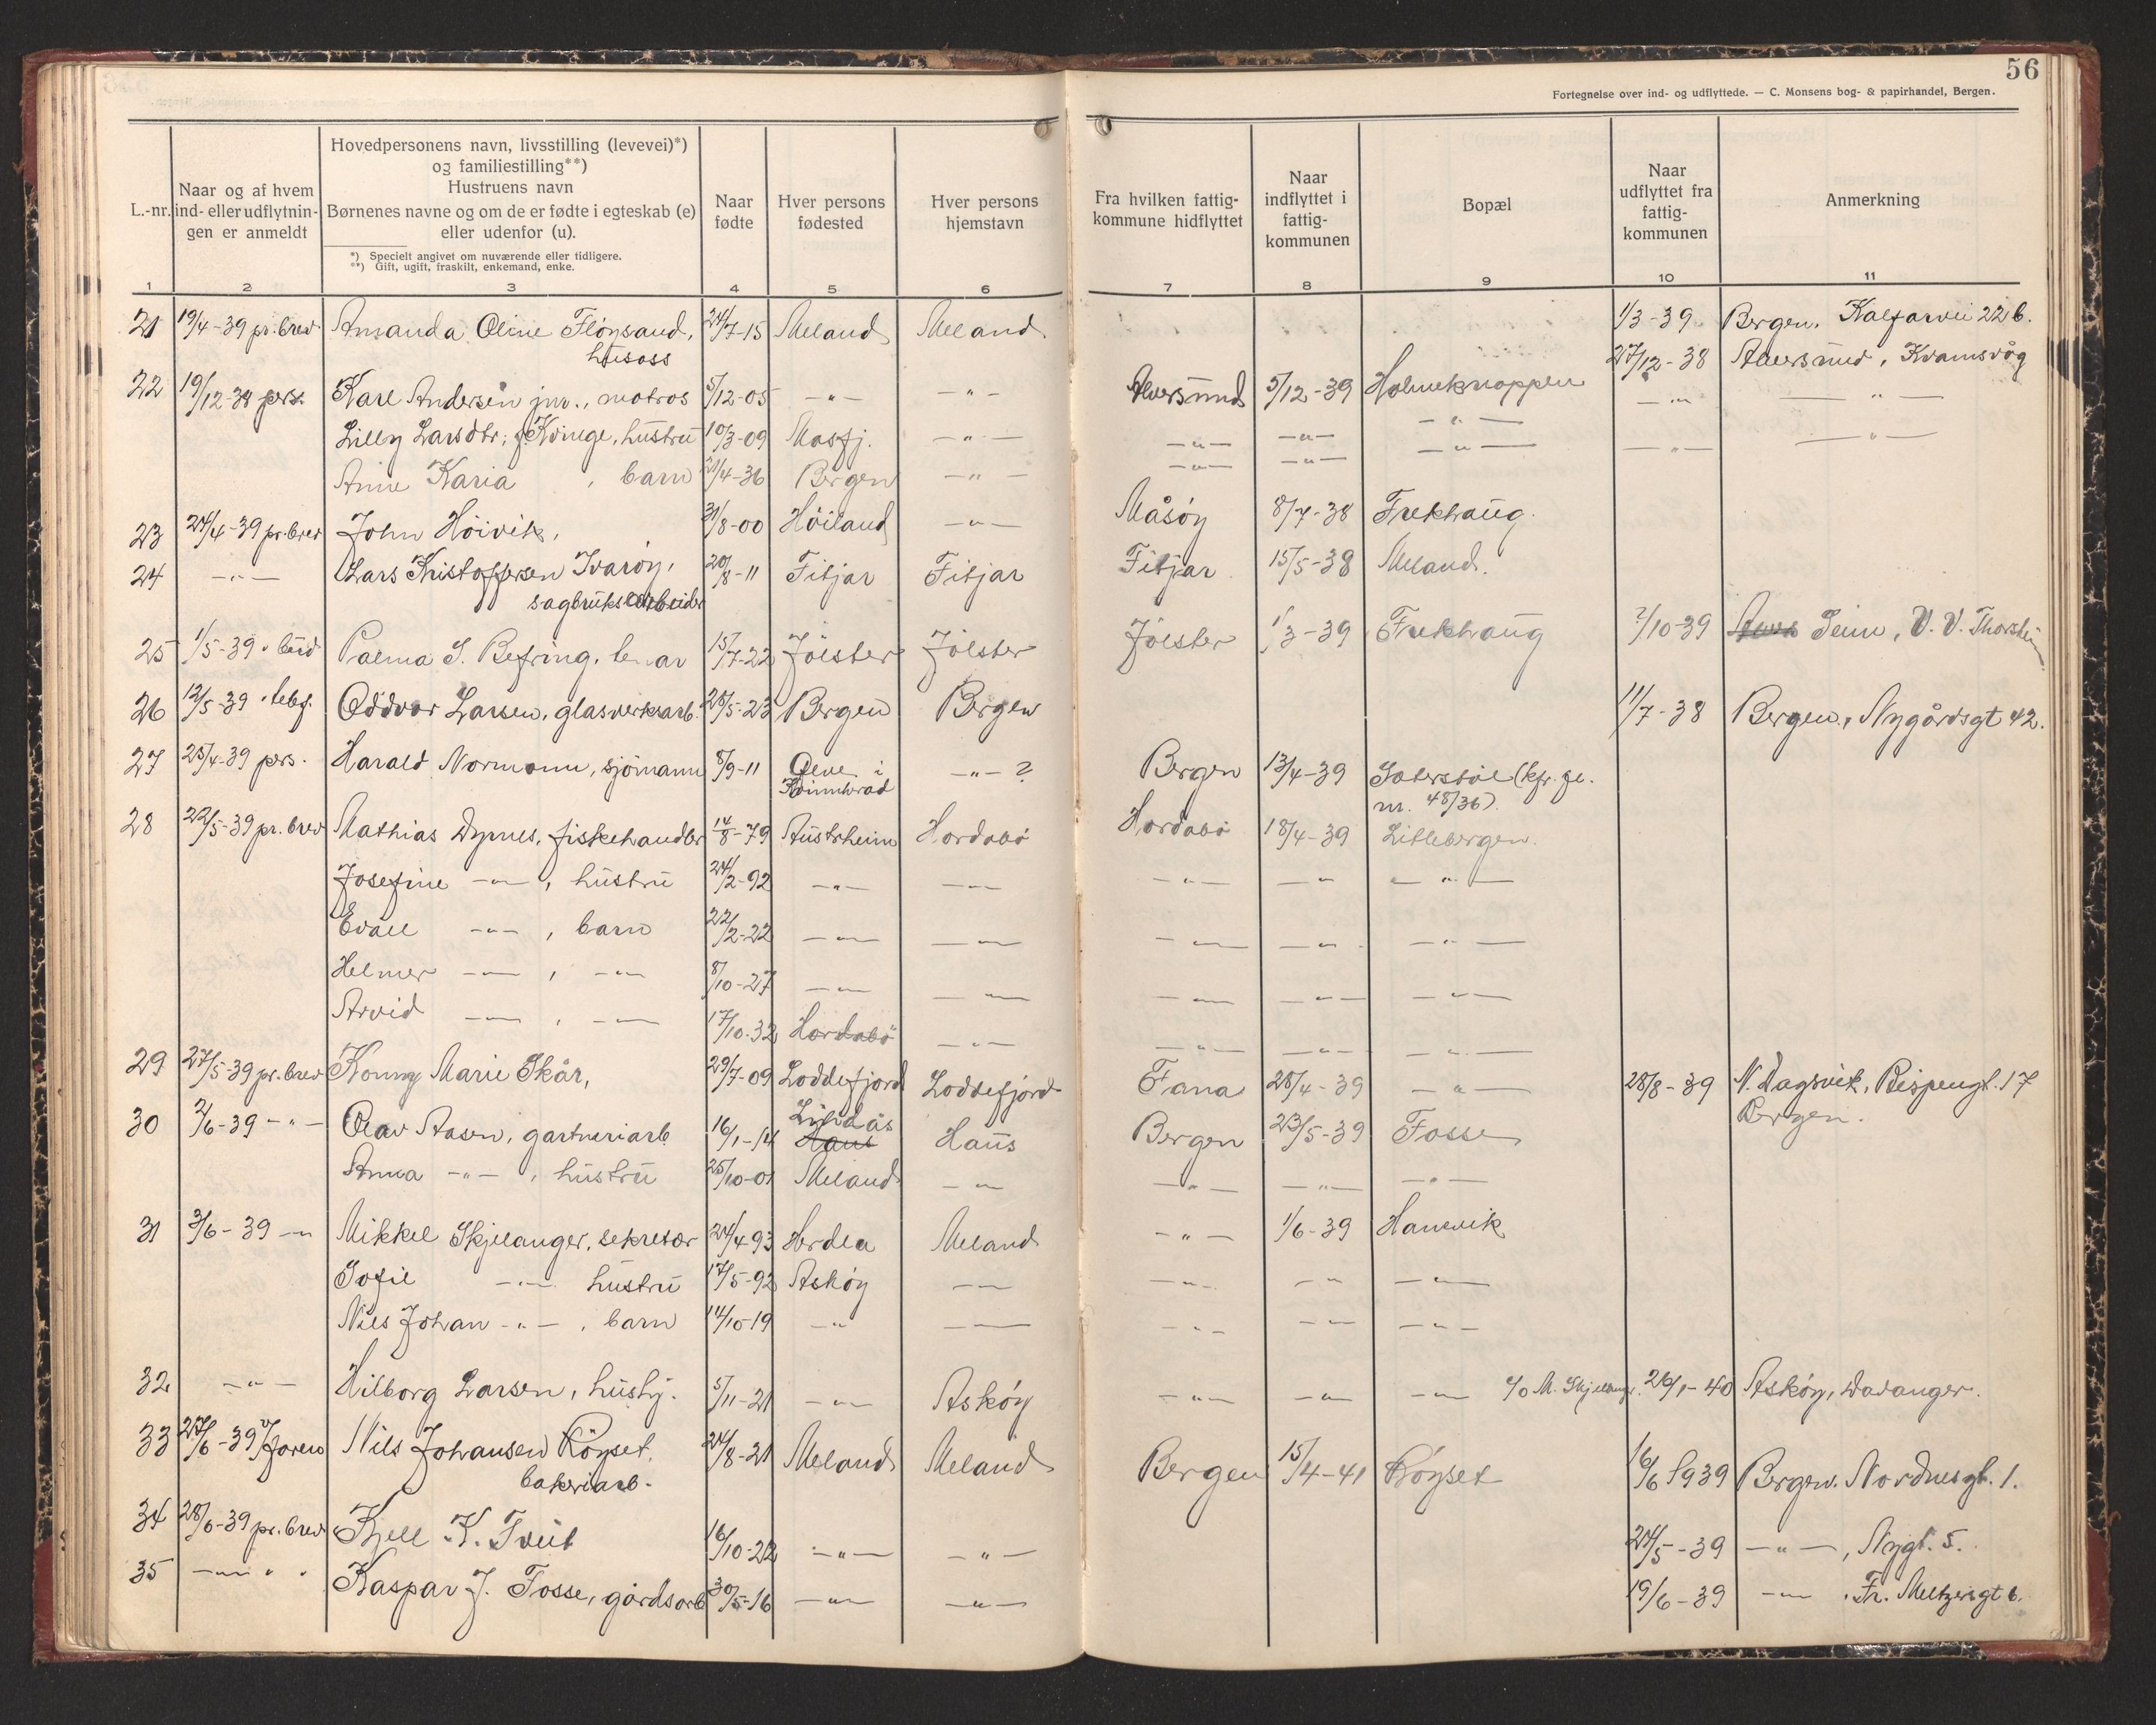 56
Fortegnelse over ind- og udflyttede. — C. Monsens bog- & papirhandel, Bergen.
L.-nr.
Naar og af hvem ind- eller udflytningen er anmeldt
Hovedpersonens navn, livsstilling (levevei)*)
og familiestilling**)
Hustruens navn
Børnenes navne og om de er fødte i egteskab (e)
eller udenfor (u).
*) Specielt angivet om nuværende eller tidligere.
**) Gift, ugift, fraskilt, enkemand, enke.
Naar fødte
Hver persons fødested
Hver persons hjemstavn
Fra hvilken fattig-kommune hidflyttet
Naar indflyttet i fattig-kommunen
Bopæl
Naar udflyttet fra fattig-kommunen
Anmerkning
1 2 3 4 5 6 7 8 9 10 11
21 19/4-39 pr. brev Amanda Oline Flöysand, 24/7-15 Meland Meland 1/3-39 Bergen. Kalfarvei 22 b.
husass
27/12-38 Alversund, Kvamsvåg
22 19/12-38 pers. Karl Andersen jnr., matros 5/12-05 -"- -"- Alversund 5/12-39 Holmeknappen -"- -"-
Lilly Larsdtr; f. Kvinge, hustru 10/3-09 Masfj. -"- -"- -"- -"- -"- -"-
Anne Karia, barn 21/4-36 Bergen -"- -"- -"- -"-
23 24/4-39 pr. brev John Höivik, 31/8-00 Höiland -"- Måsöy 8/7-38 Frekhaug.
24 -"- Lars Kristoffersen Ivaröy, 20/8-11 Fitjar Fitjar Fitjar 15/5-38 Meland.
sagbruksarbeider
25 1/5-39 " bud Palma S. Befring. 15/7-22 Jölster Jölster Jölster 1/3-39 Frekhaug 2/10-39 Seim, V. V. Thorshei
26 12/5-39 " telef. Oddvar Larsen, glasverksarb. 28/5-23 Bergen Bergen 11/7-38 Bergen, Nygårdsgt 42.
27 25/4-39 pers. Harald Normann, sjömann 8/9-11 Ølve i -"- ? Bergen 13/4-39 Sæterstöl (kfr. ge.
Kvinnherad nr. 48/36).
28 22/5-39 pr. brev Mathias Dyrnes, fiskehandler 14/8-79 Austrheim Hordabö Hordabö 18/4-39 Litlebergen.
Josefine -"-, hustru 24/2-92 -"- -"- -"- -"- -"-
Evall -"-, barn 22/2-22 -"- -"- -"- -"- -"-
Helmer -"-, -"- 8/10-27 -"- -"- -"- -"- -"-
Arvid -"-, -"- 17/10-32 Hordabö -"- -"- -"- -"-
29 27/5-39 pr. brev Konny Marie Skår, 29/7-09 Loddefjord Loddefjord Fana 28/4-39 -"- 28/8-39 N. Dagsvik, Bispengt. 17
Bergen.
30 2/6-39 -"- Olav Aasen, gartneriarb. 16/1-14 Lindås Haus Haus Bergen 23/5-39 Fosse
Anna -"-, hustru 25/10-01 Meland -"- -"- -"- -"-
31 3/6-39 -"- Mikkel Skjelanger, sekretær 24/4-93 Herdla Meland -"- 1/6-39 Hanevik
Sofie -"- hustru 17/5-92 Asköy -"- -"- -"- -"-
Nils Johan -"-, barn 14/10-19 -"- -"- -"- -"- -"-
32 -"- Hilborg Larsen, hushj. 5/11-21 -"- Asköy -"- -"- -"- c/o M. Skjelanger. 26/1-40 Asköy, Davanger.
33 27/6-39 v/ faren Nils Johansen Röyset, 24/8-21 Meland Meland Bergen 15/4-41 Röyset 16/6 1939 Bergen. Nordnesgt. 1.
bakeriarb.
34 28/6-39 pr. brev Kjell K. Tveit 16/10-22 -"- -"- 24/5-39 -"-, Nygt. 5.
35 -"- " " Kaspar J. Fosse, gårdsarb 30/5-16 -"- -"- 19/6-39 -"-. Fr. Meltzersgt 6.